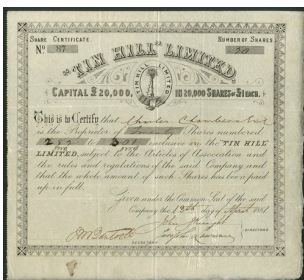 SHARE CERTIFICATE. NUMBER OF SHARES
No. 87
"TIN HILL" LIMITED.
TIN HILL LIMITED
CAPITAL £20,000, IN 20,000 SHARES OF £1 EACH.
This is to Certify that Charles
is the Proprietor of Shares numbered
to inclusive in the "TIN HILL"
LIMITED, subject to the Articles of Association and
the rules and regulations of the said Company and
that the whole amount of such Shares has been paid
up in full.
Given under the Common Seal of the said
Company the day of April 1881
DIRECTORS
SECRETARY